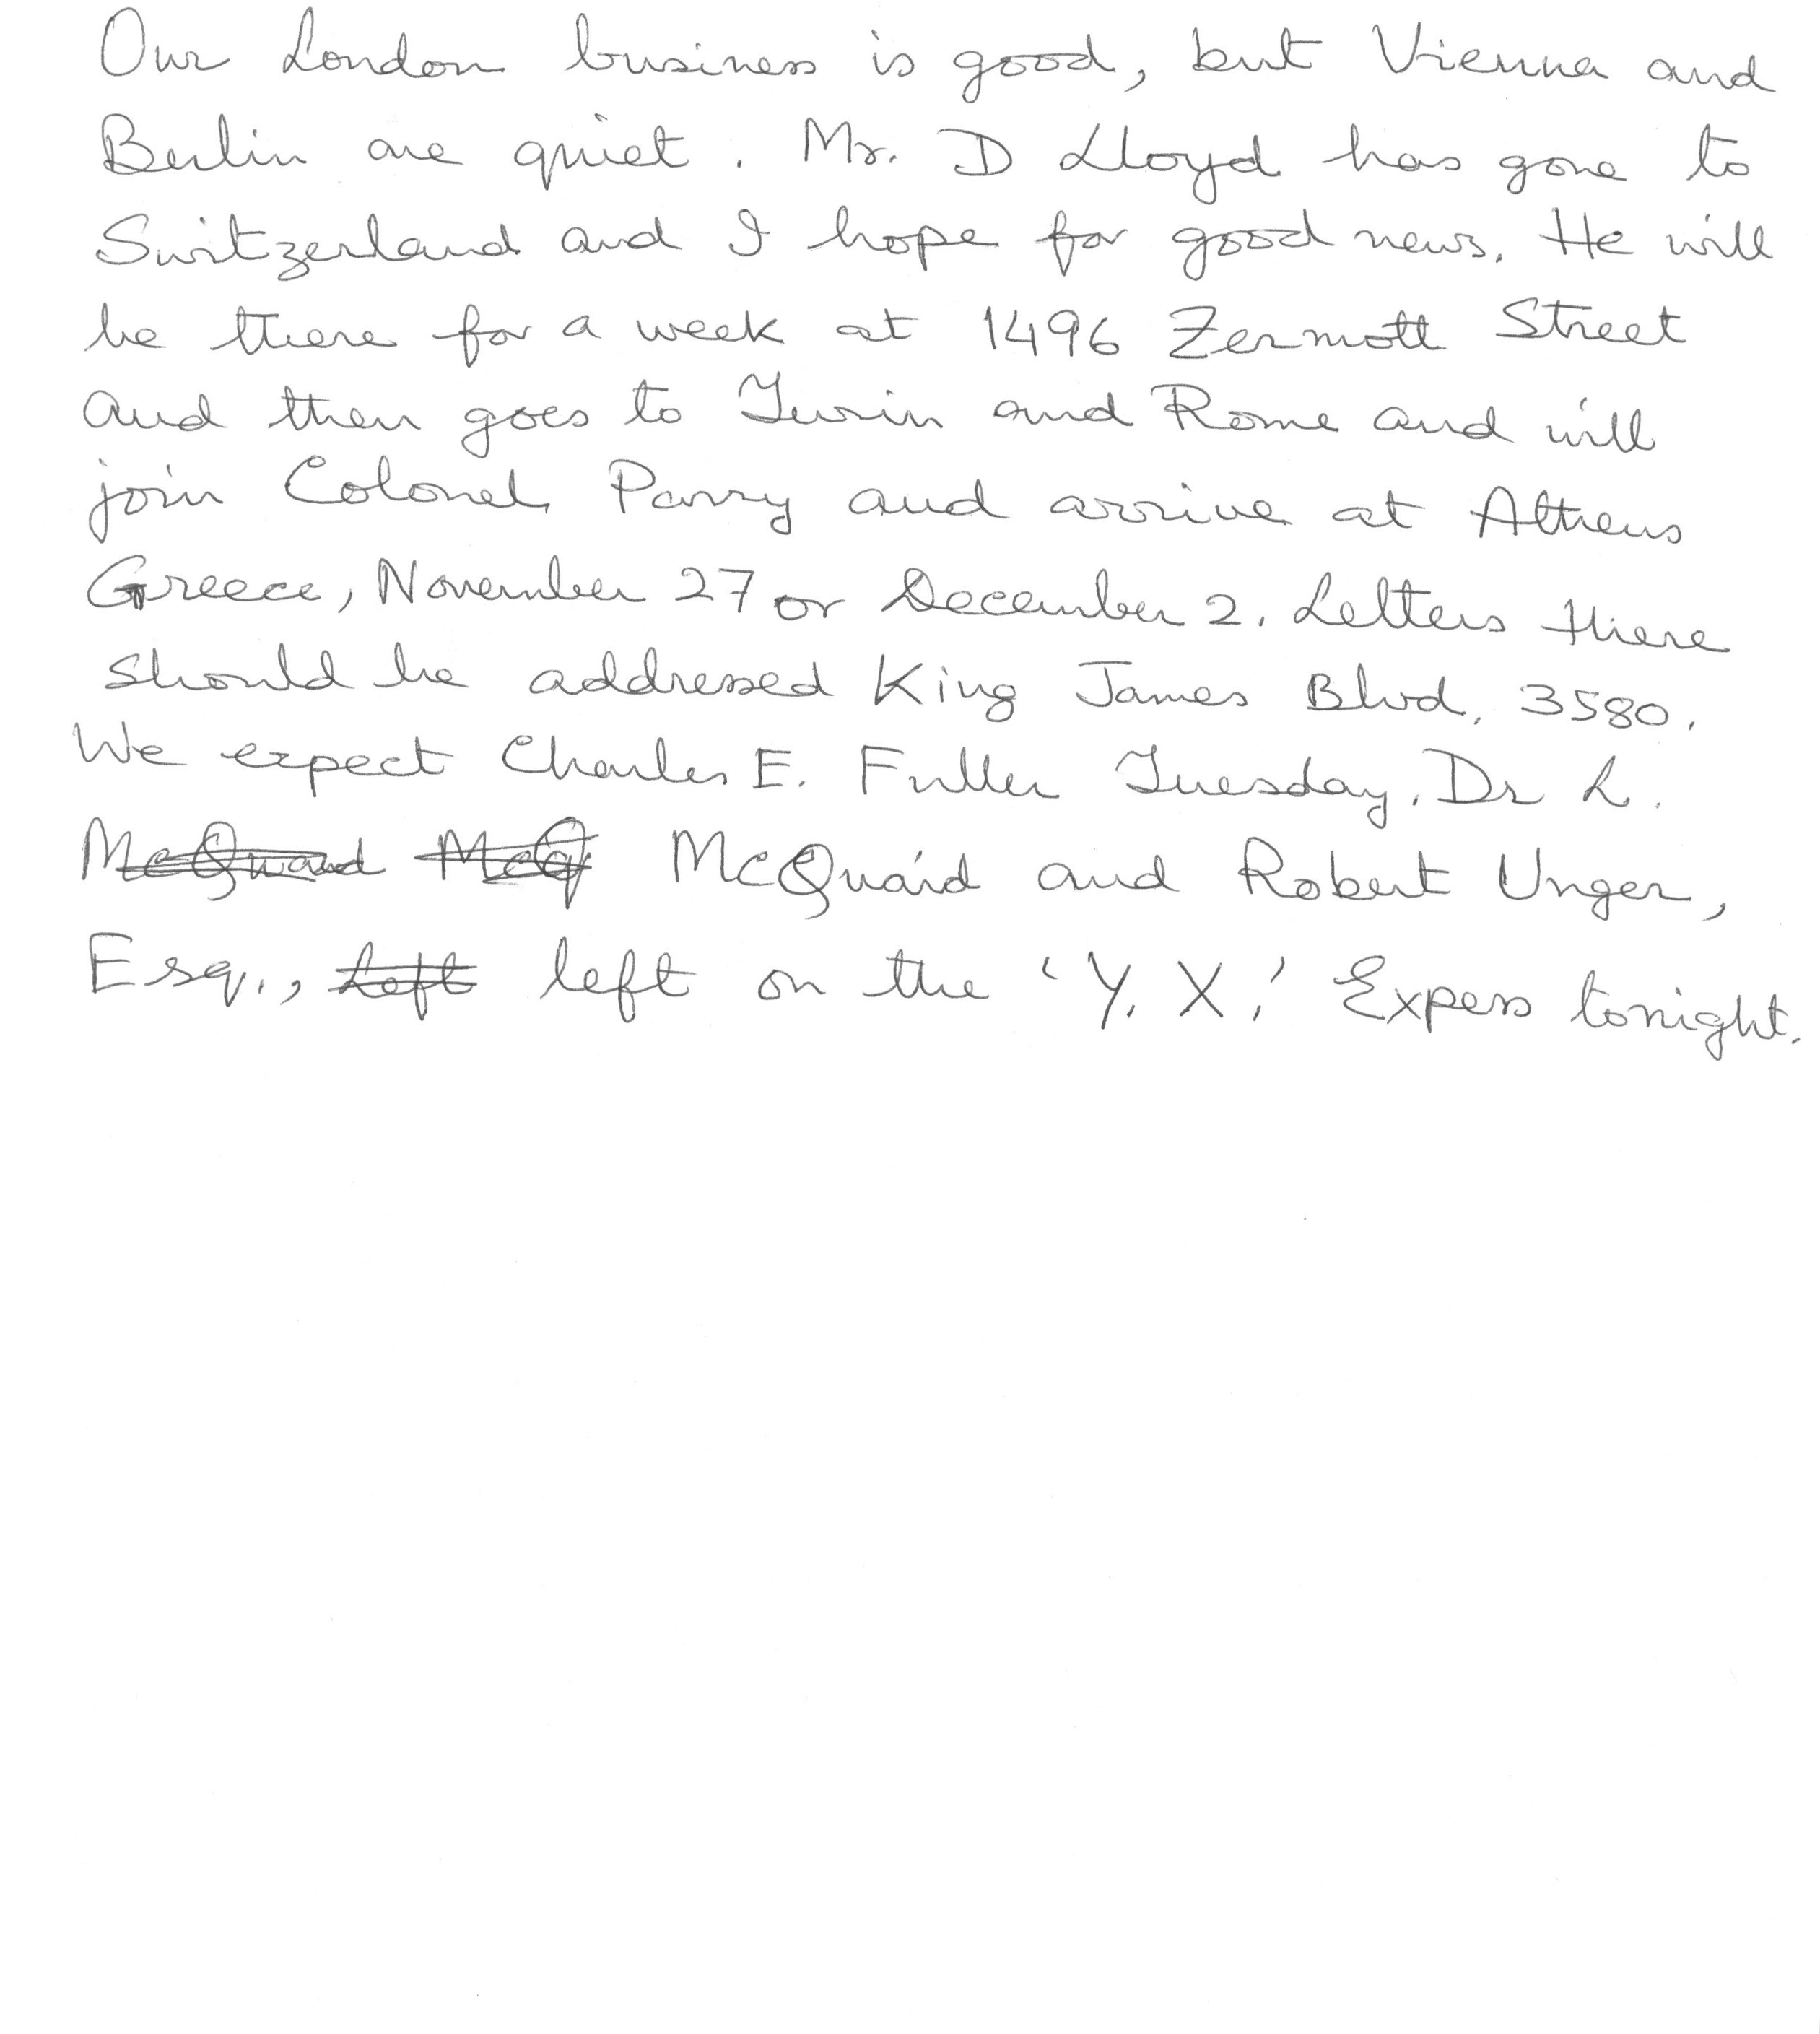 Our London business is good, but Vienna and
Berlin are quiet. Mr. D Lloyd has gone to
Switzerland and I hope for good news. He will
be there for a week at 1496 Zermott Street
and then goes to Turin and Rome and will
join Colonel Parry and arrive at Athens
Greece, November 27 or December 2. Letters there
should be addressed King James Blvd. 3580.
We expect Charles E. Fuller Tuesday. Dr L.
McQuaid and Robert Unger,
Esq., left on the 'Y. X.' Expess tonight.